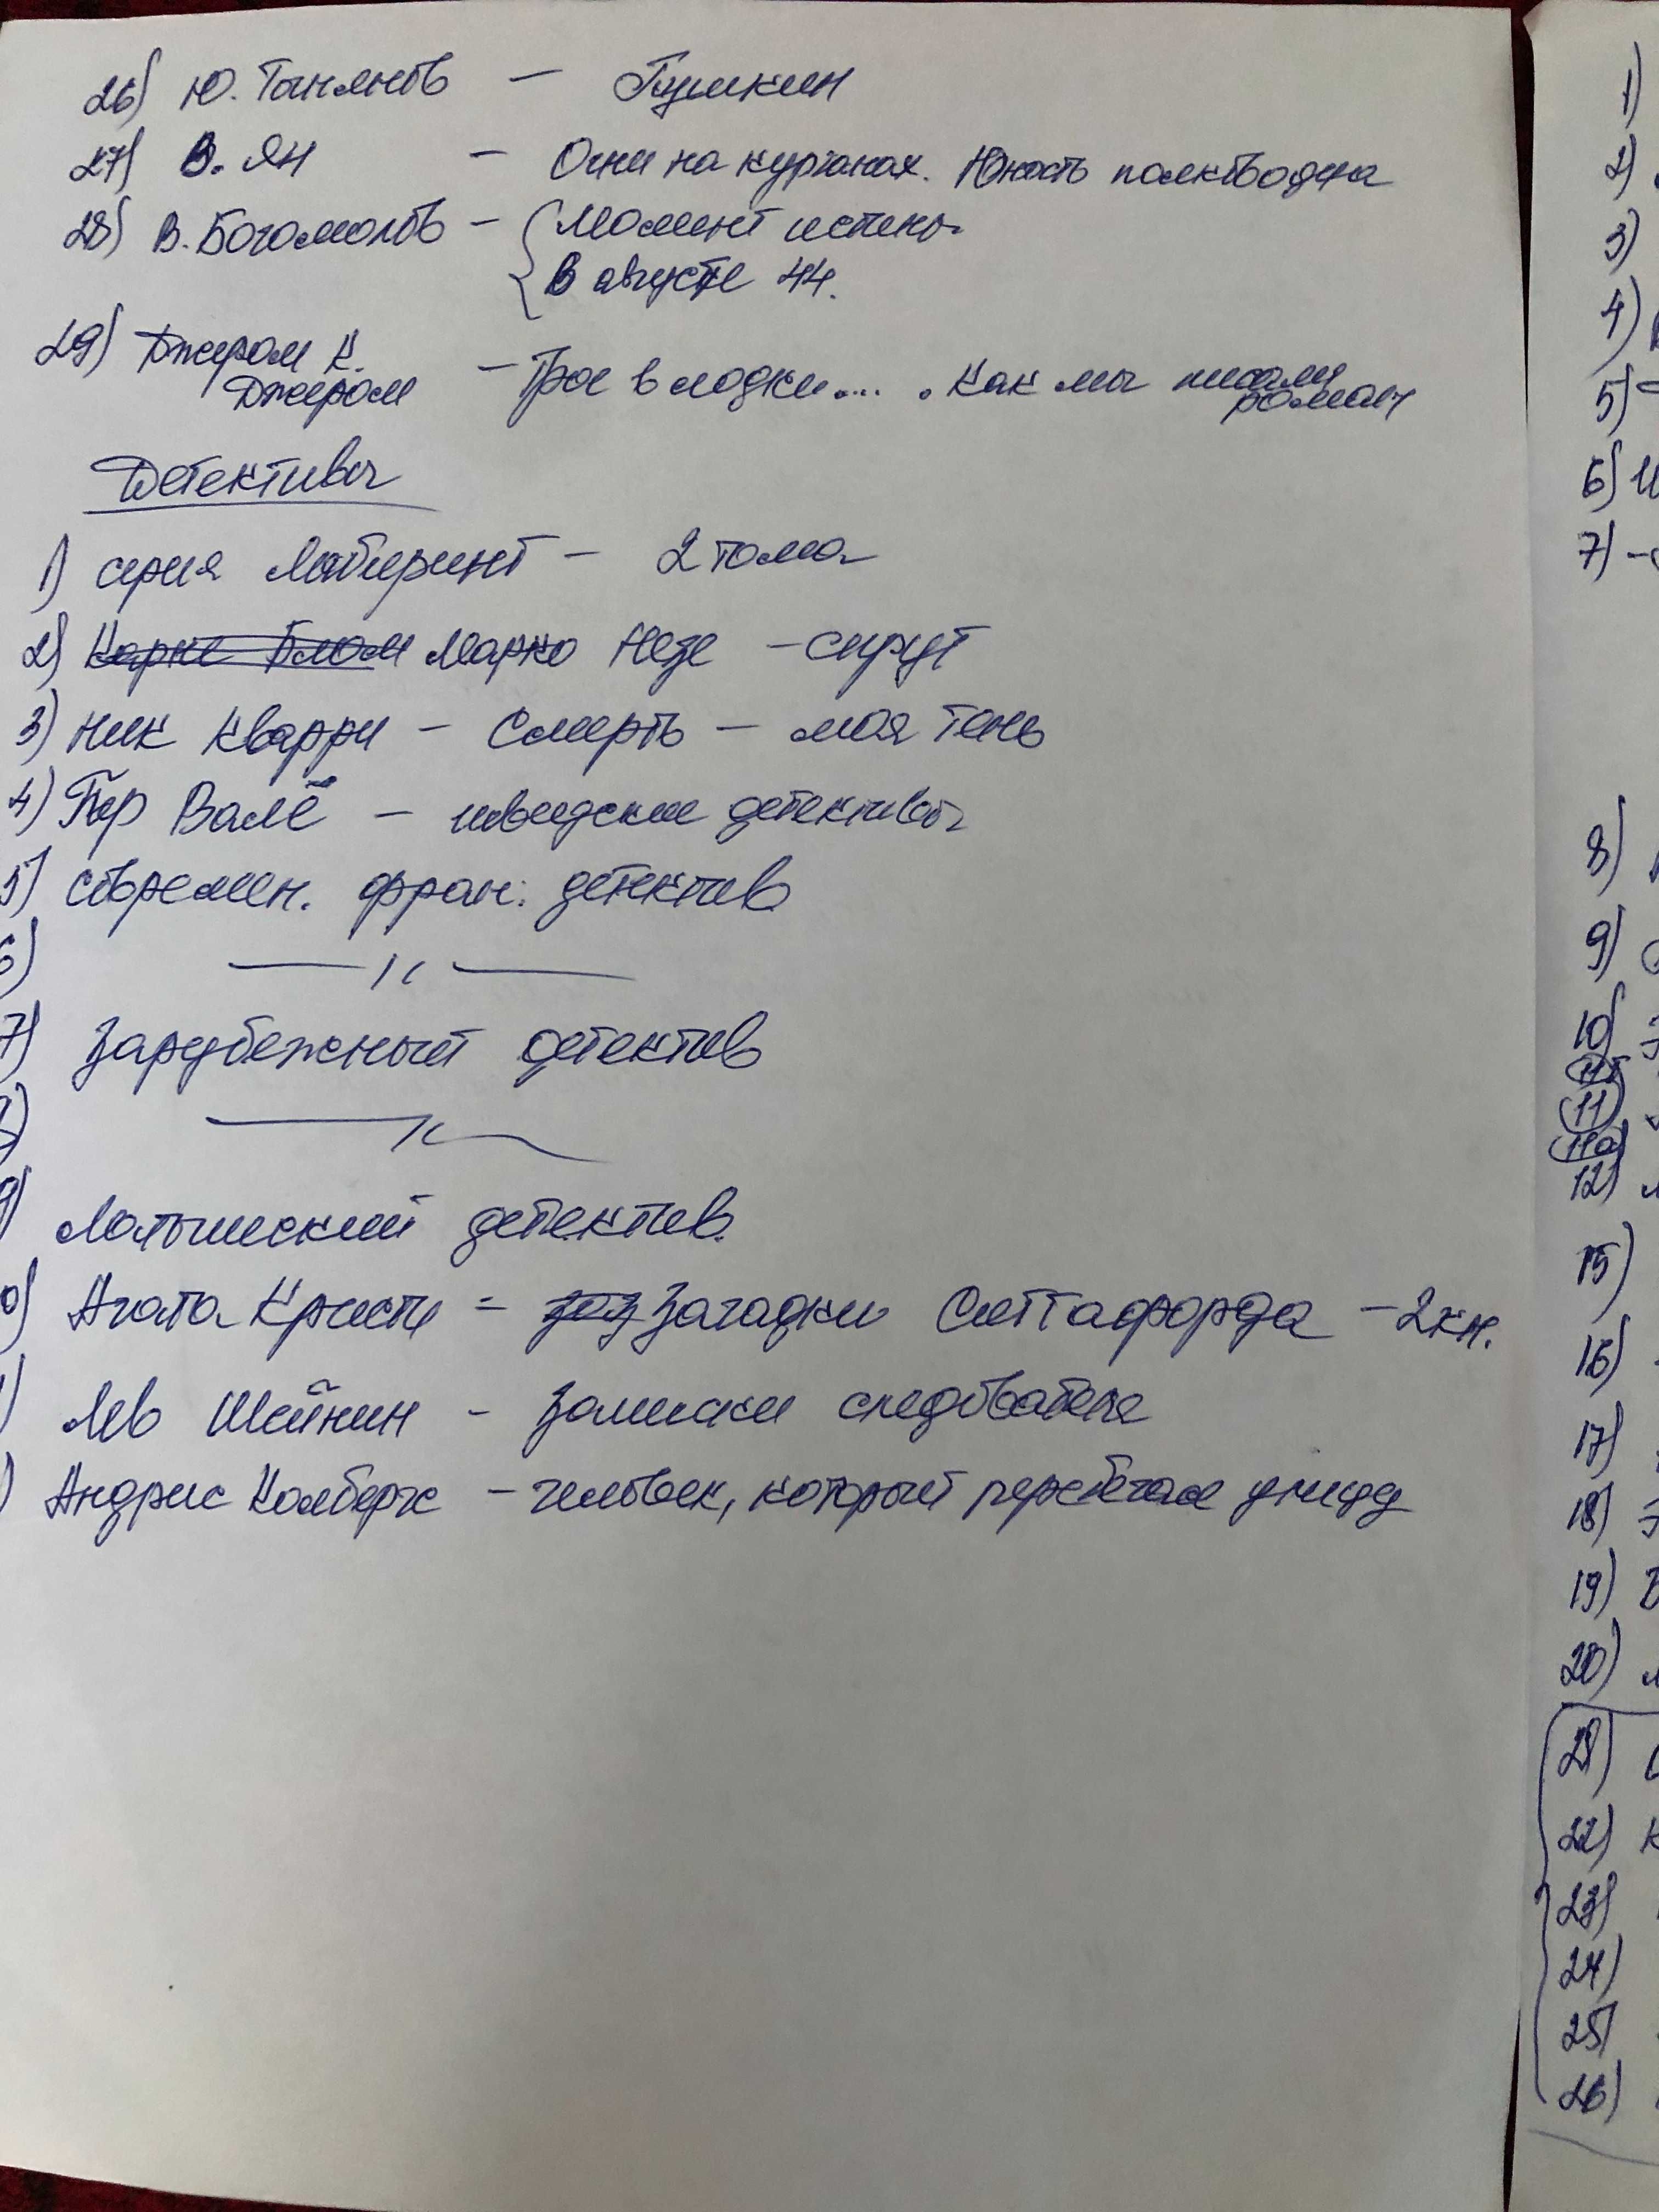 26) Ю. Тынянов — Пушкин
27) В. Ян — Огни на курганах. Юность полководца
28) В. Богомолов — Момент истины
В августе 44.
29) Джером К.
Джером — Трое в лодки.... . Как мы писали
роман
Детективы
1) серия Лабиринт — 2 тома
2) Карне Блом Марко Незе — спрут
3) Ник Кварри — Смерть — моя тень
4) Пер Валё — шведские детективы
5) Соврем. фран. детектив
6) —〃—
7) Зарубежный детектив
—〃—
9) Латышский детектив.
0) Агата Кристи — Загадки Ситтафорда — 2 кн.
) Лев Шейнин — Записки следователя
) Андрис Колбергс — Человек, который перебегал улицу
1)
2)
3)
4)
5)
6)
7) —
8)
9)
10)
11)
11а)
12)
15)
16)
17)
18)
19)
20)
21)
22)
23)
24)
25)
26)